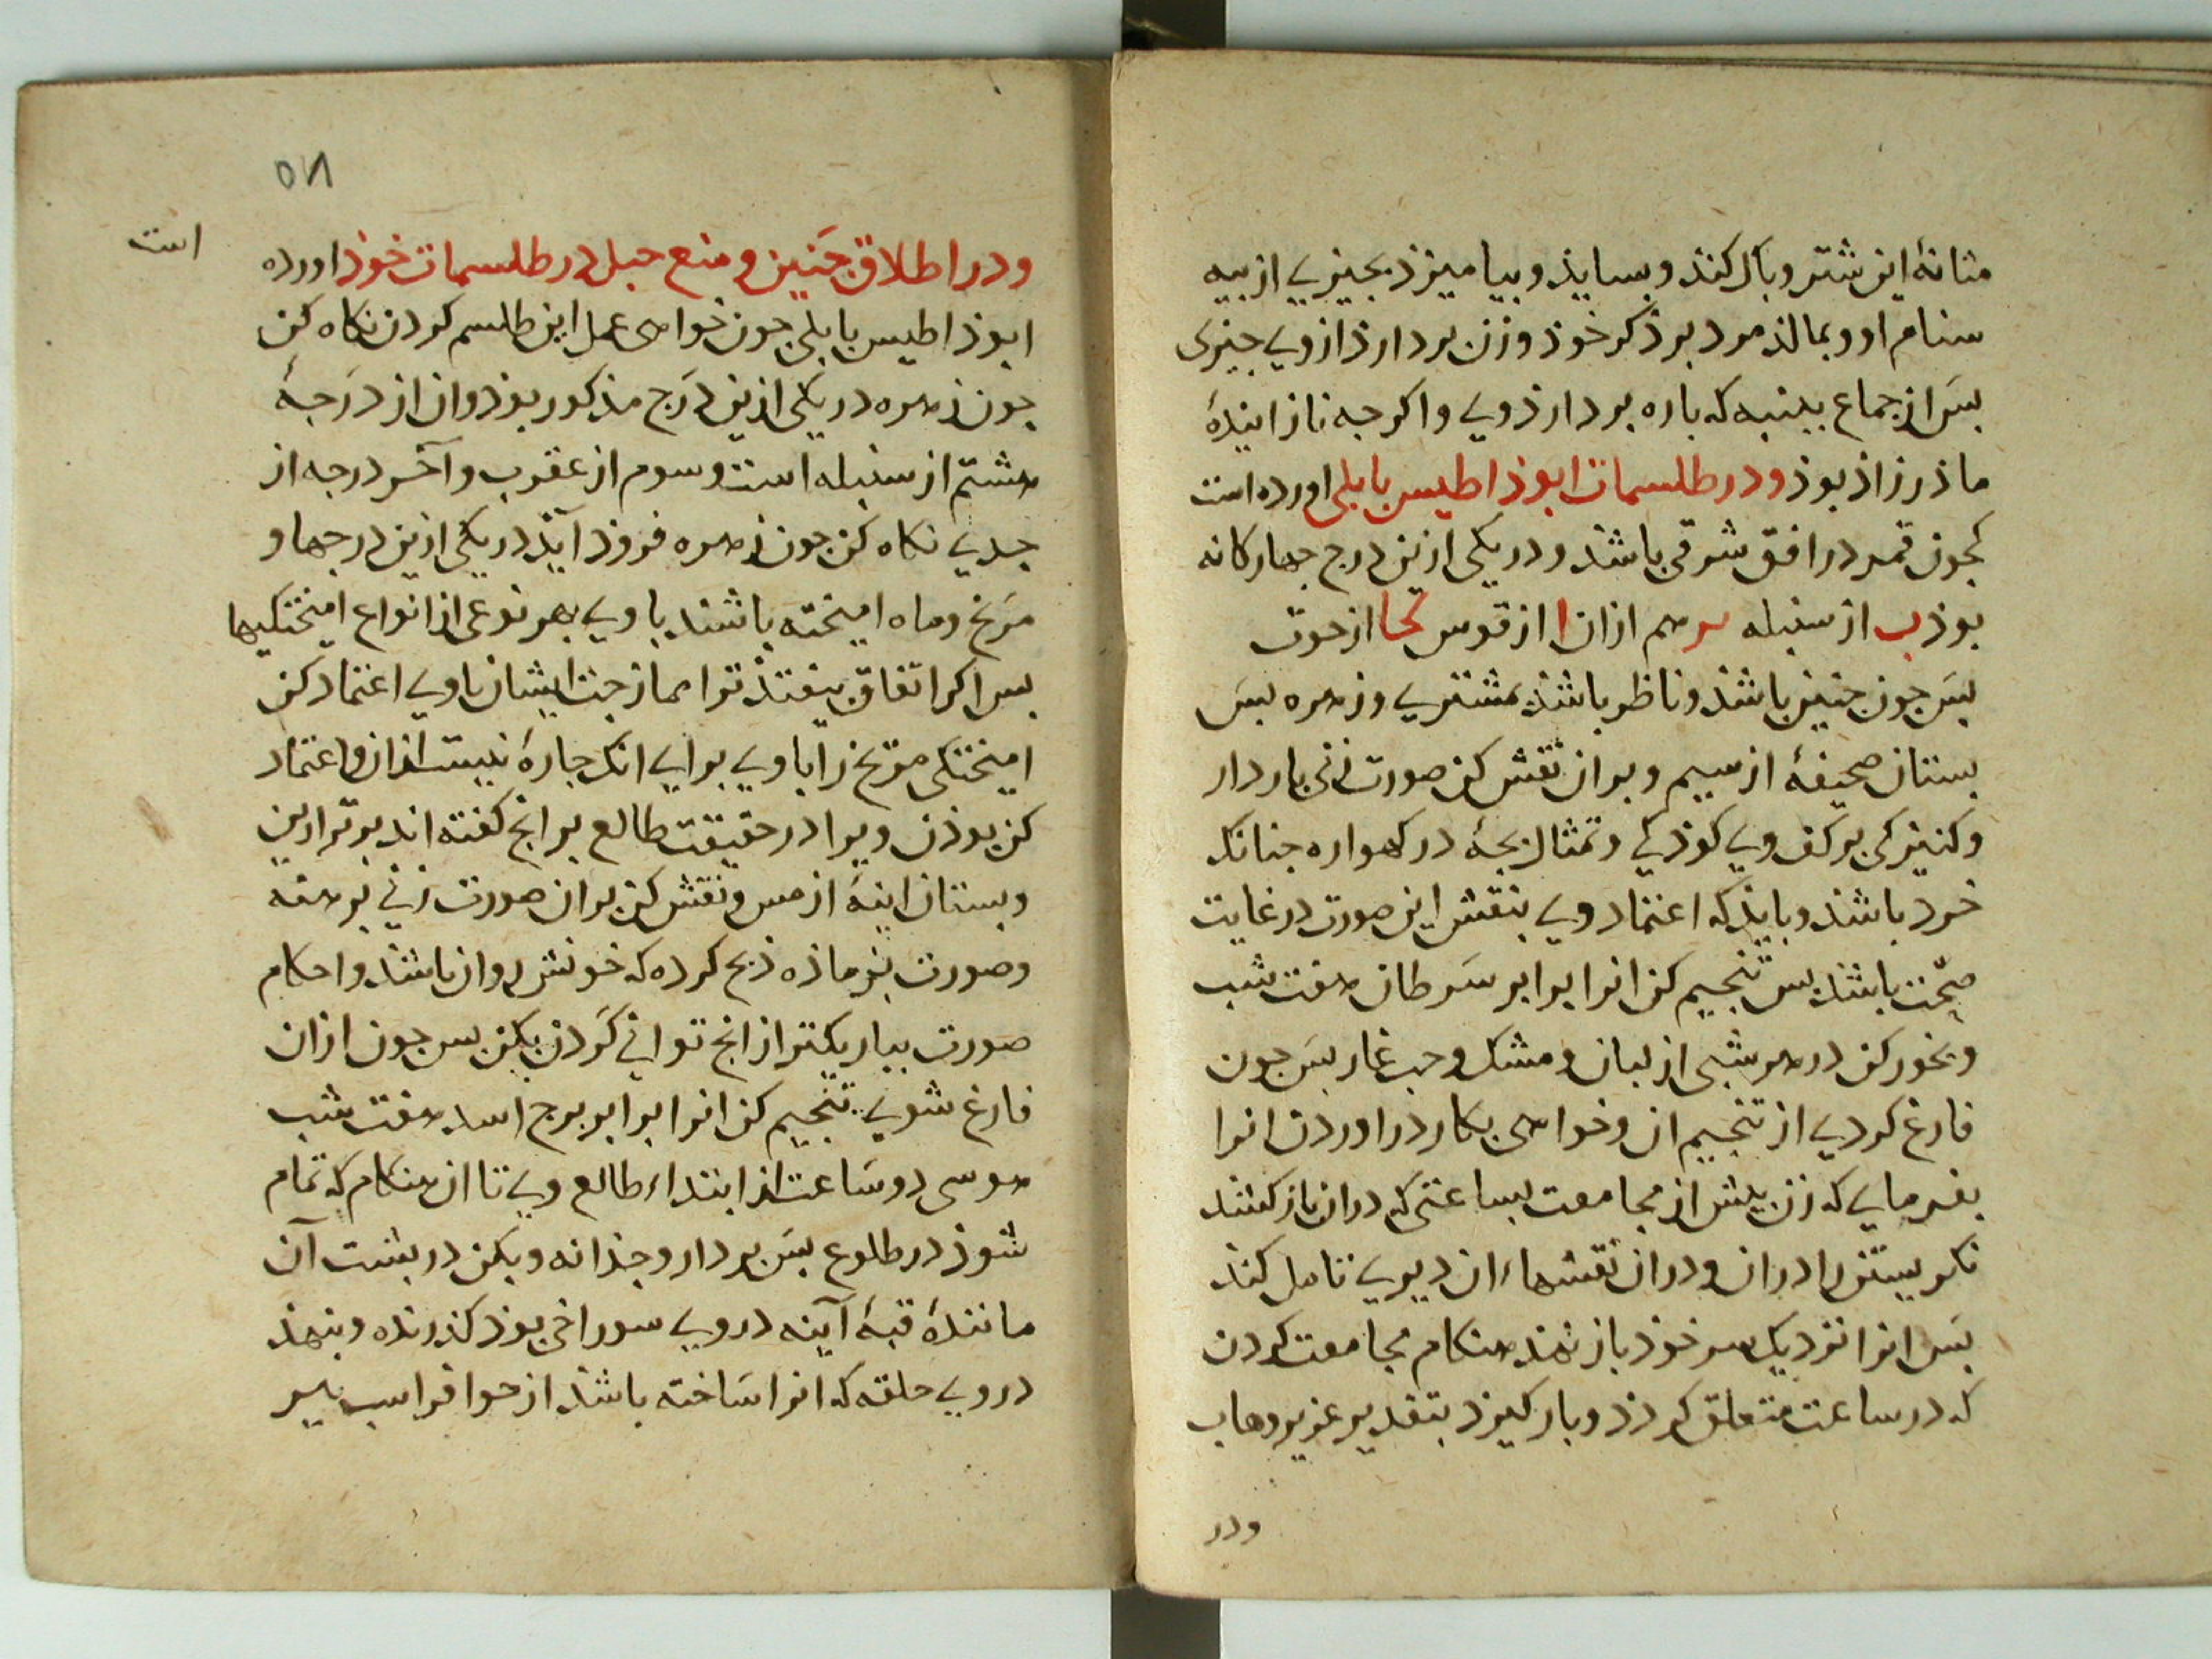 مثانهٔ این شتر و باک کنذ و بسایذ و بیامیزذ بجیزی از بیه
سنام او و بمالذ مرد بر ذکر خوذ و زن بردارذ از وی جیزی
بس از جماع ببنبه که باره بردارذ وی و اکرجه نازاینده
ماذرزاذ بوذ و در طلسمات ابوذاطیس بابلی اورده است
کجون قمر در افق شرقی باشذ و در یکی ازین درج جهارکانه
بوذ ب از سنبله هم ازان ا از قوس کحا از حوت
بس جون جنین باشذ و ناظر باشذ بمشتری و زهره بس
بستان صحیفهٔ از سیم و بران نقش کن صورت زنی باردار
و کنیزکی بر کف وی کوذکی و تمثال بجهٔ در کهواره جنانک
خرد باشذ و بایذ که اعتماد وی بنقش این صورت در غایت
صحّت باشذ بس تنجیم کن انرا برابر سرطان هفت شب
و بخور کن در هر شبی از لبان و مشک و حب غار بس جون
فارغ کردی از تنجیم ان و خواهی بکار دراوردن انرا
بفرمای که زن بیش از مجامعت بساعتی که دران باز کشذ
نکریستن را دران و دران نقشهاء ان دیری تامل کنذ
بس انرا نزدیک سر خوذ باز نهذ هنکام مجامعت کردن
که در ساعت متعلق کردذ و بار کیرذ بتقدیر عزیز وهاب
ودر
۵۸
و در اطلاق جنین و منع حبل در طلسمات خوذ اورده
است
ابوذاطیس بابلی جون خواهی عمل این طلسم کردن نکاه کن
جون زهره در یکی ازین درج مذکور بوذ و ان از درجهٔ
هشتم از سنبله است و سوم از عقرب و آخر درجه از
جدی نکاه کن جون زهره فروذ آیذ در یکی ازین درجها و
مریخ و ماه امیخته باشند با وی بهر نوعی از انواع امیختکیها
بس اکر اتفاق نیفتذ ترا ممازجت ایشان با وی اعتماد کن
امیختکی مریخ را با وی برای انک جارهٔ نیست ازان و اعتماد
کن بوذن ویرا در حقیقت طالع بر انج کفته اند برترازین
و بستان اینهٔ از مس و نقش کن بران صورت زنی برهنه
و صورت بزماذه ذبح کرده که خونش روان باشذ و احکام
صورت بباریکتر از انج توانی کردن بکن بس جون ازان
فارغ شوی تنجیم کن انرا برابر برج اسد هفت شب
هر سی دو ساعت از ابتداء طالع وی تا ان هنکام که تمام
شوذ در طلوع بس بردار و جذانه و بکن در بشت آن
مانندهٔ قبهٔ آینه در وی سوراخی بوذ کذرنده و بنهذ
در وی حلقه که انرا ساخته باشذ از حوافر اسب